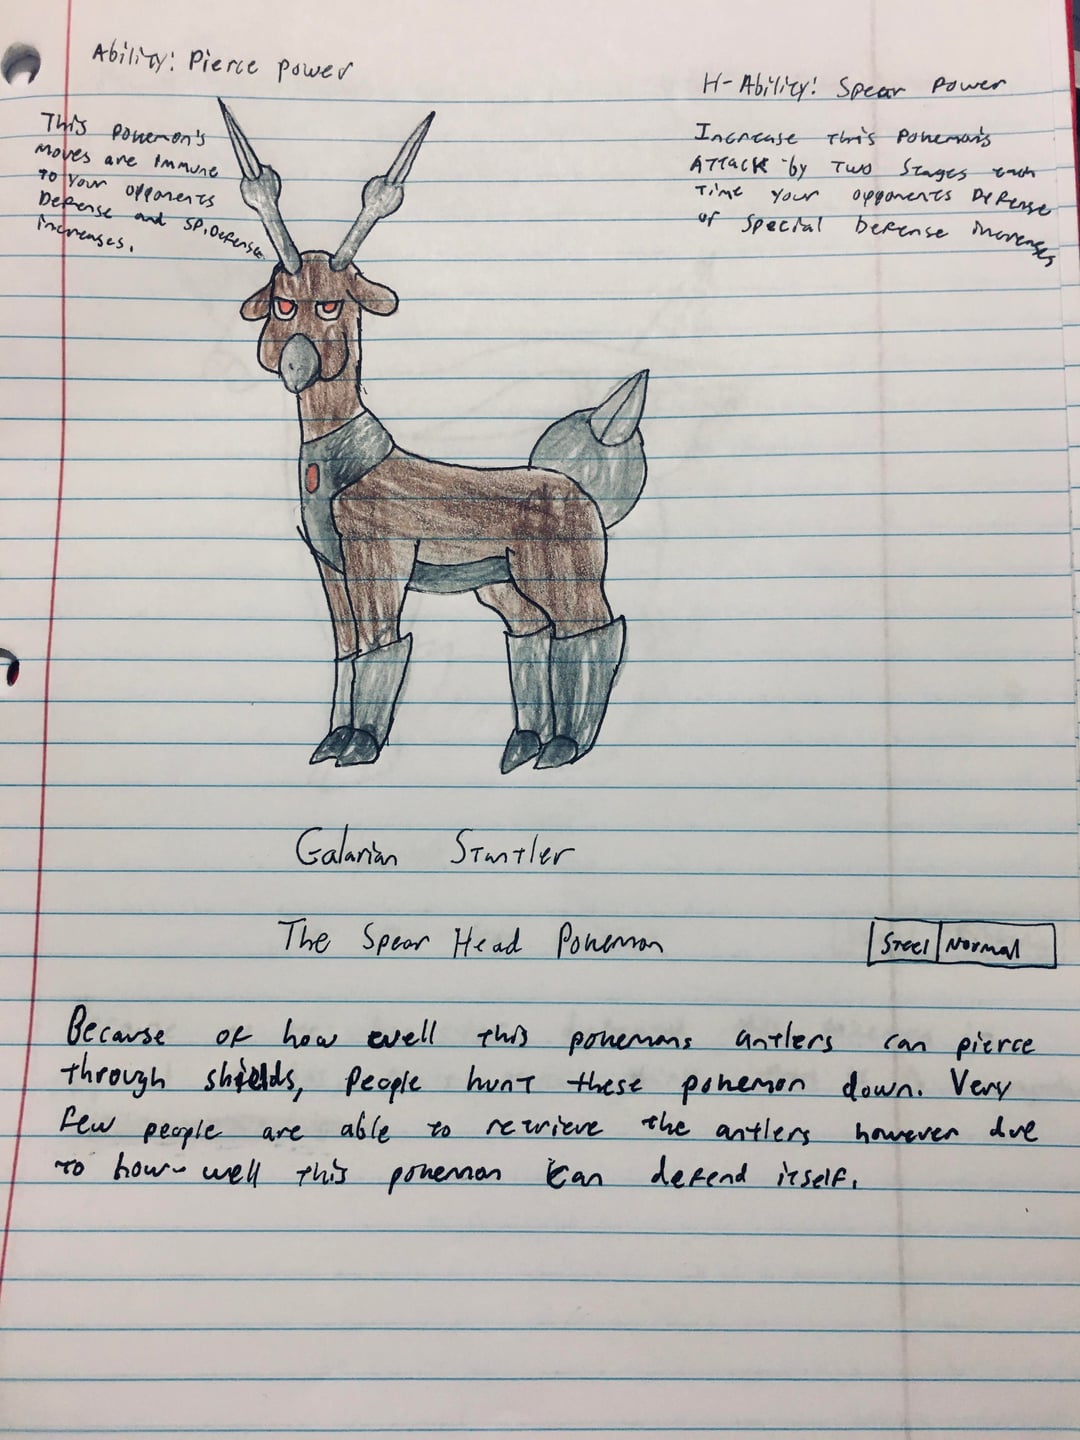 Ability: Pierce power
This Pokemon's
moves are immune
to your opponents
Defense and SP. Defense
increases.
H-Ability: Spear Power
Increase this Pokemon's
Attack by two stages each
time your opponents Defense
or Special Defense increases
Galarian Stantler
The Spear Head Pokemon
Steel Normal
Because of how well this pokemons antlers can pierce
through shields, people hunt these pokemon down. Very
few people are able to retrieve the antlers however due
to how well this pokemon can defend itself.